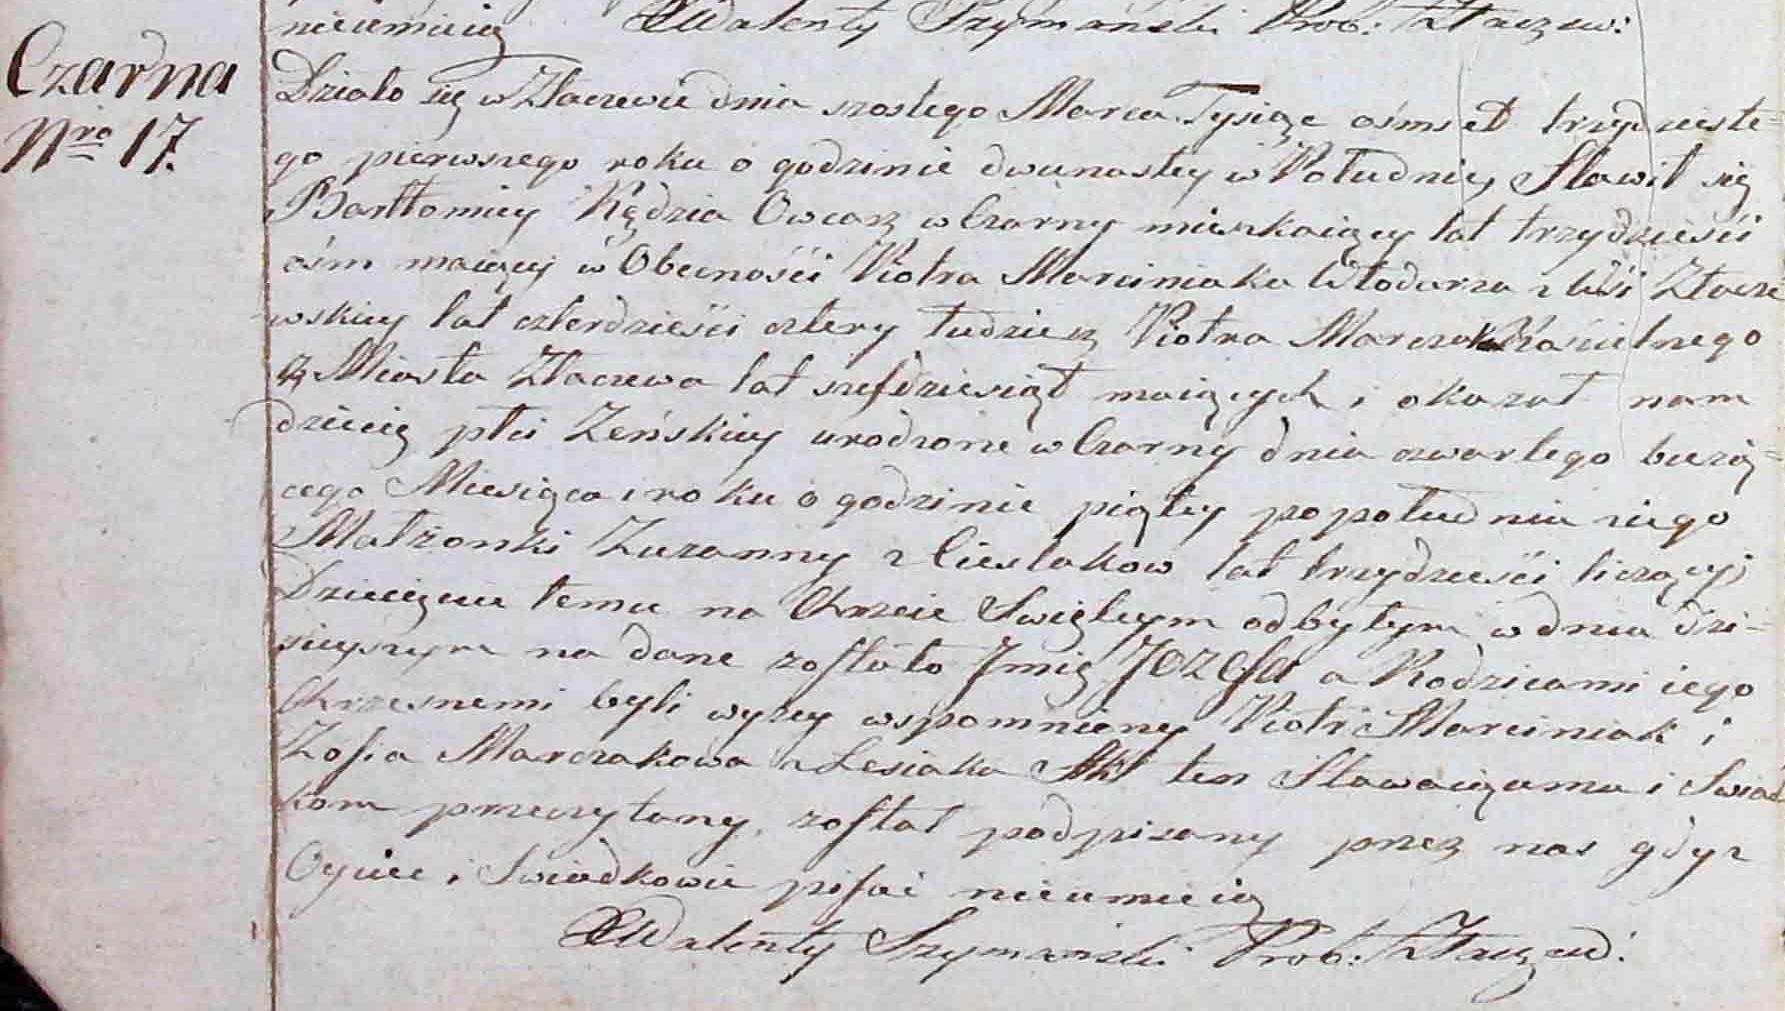 nieumieią XWalenty Szymański Prob: Złaczew:
Czarna
Nro 17.
Działo się w Złaczewie dnia szostego Marca Tysiąc ośmset trzydzieste-
go pierwszego roku o godzinie dwunastey w Południe, Stawił się
Bartłomiey Kędzia Owcarz w Czarny mieszkaiący lat trzydzieści
ośm maiący w Obecności Piotra Marciniaka Włodarza z Wśi Złacze
wskiey lat czterdzieści cztery tudziesz Piotra Marczaka Kościelnego
z Miasta Złaczewa lat sześdziesiąt maiących i okazał nam
dziecię płci Zeńskiey urodzone w Czarny dnia czwartego bieżą-
cego Miesiąca i roku o godzinie piątey popołudniu z iego
Małżonki Zuzanny z Cieslakow lat trzydzieści liczącyi
Dziecięciu temu na Chrzcie Swiętym odbytym w dniu dzi-
sieyszym na dane zostało Jmię Jozefa a Rodzicami iego
Chrzesnemi byli wyzey wspomniony Piotr Marciniak i
Zofia Marczakowa z Lesiaka Akt ten Stawaiącemu i Swiad
kom przeczytany, został podpisany przez nas gdyz
Oyciec i Swiadkowie pisać nieumieią
XWalenty Szymański Prob: Złaczew: